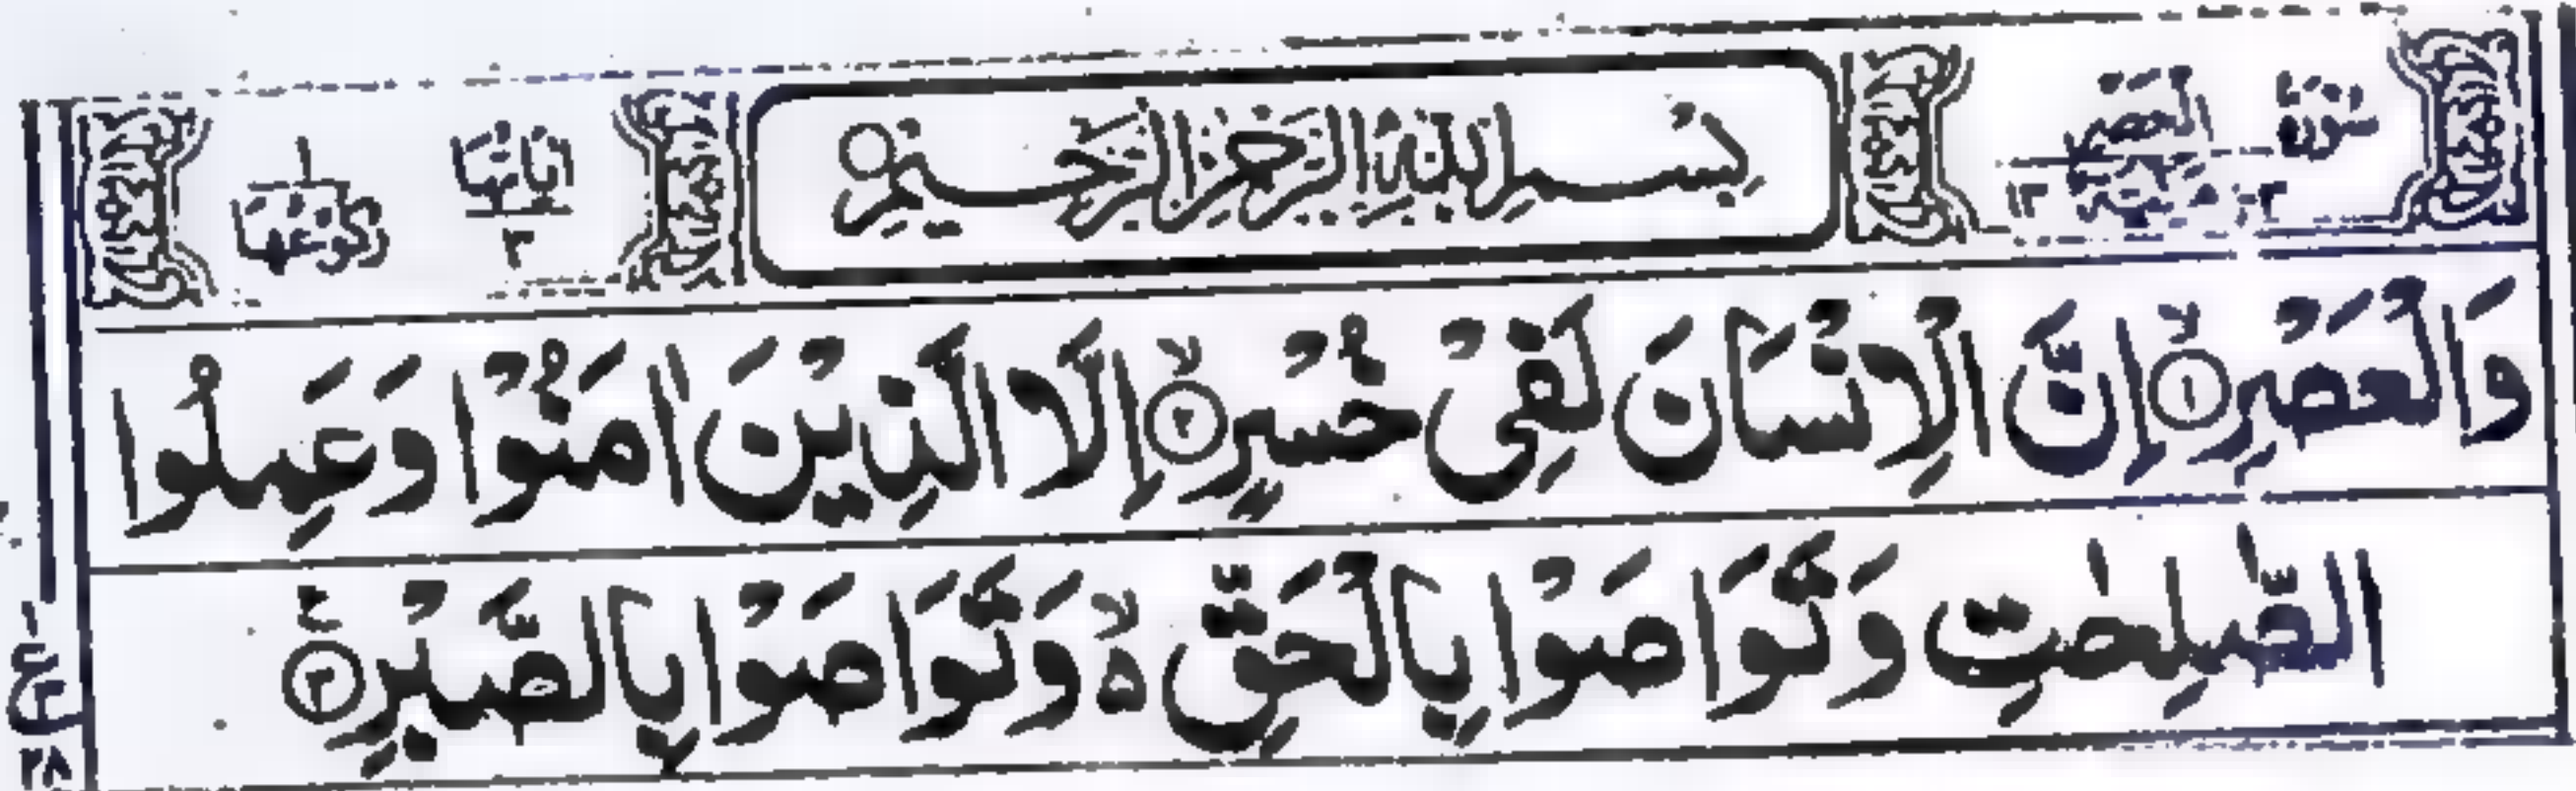 سُوْرَةُ الْعَصْرِ مَكِّيَّةٌ ١٣ بِسْمِ اللّٰهِ الرَّحْمٰنِ الرَّحِيْمِ ○ اٰيَاتُهَا ٣ رُكُوْعُهَا ١
وَالْعَصْرِ ۙ﴿١﴾ اِنَّ الْاِنْسَانَ لَفِیْ خُسْرٍ ۙ﴿٢﴾ اِلَّا الَّذِيْنَ اٰمَنُوْا وَعَمِلُوا
الصّٰلِحٰتِ وَتَوَاصَوْا بِالْحَقِّ ۬ۙ وَتَوَاصَوْا بِالصَّبْرِ ﴿٣﴾ ع
١ ع ٣ ٢٨